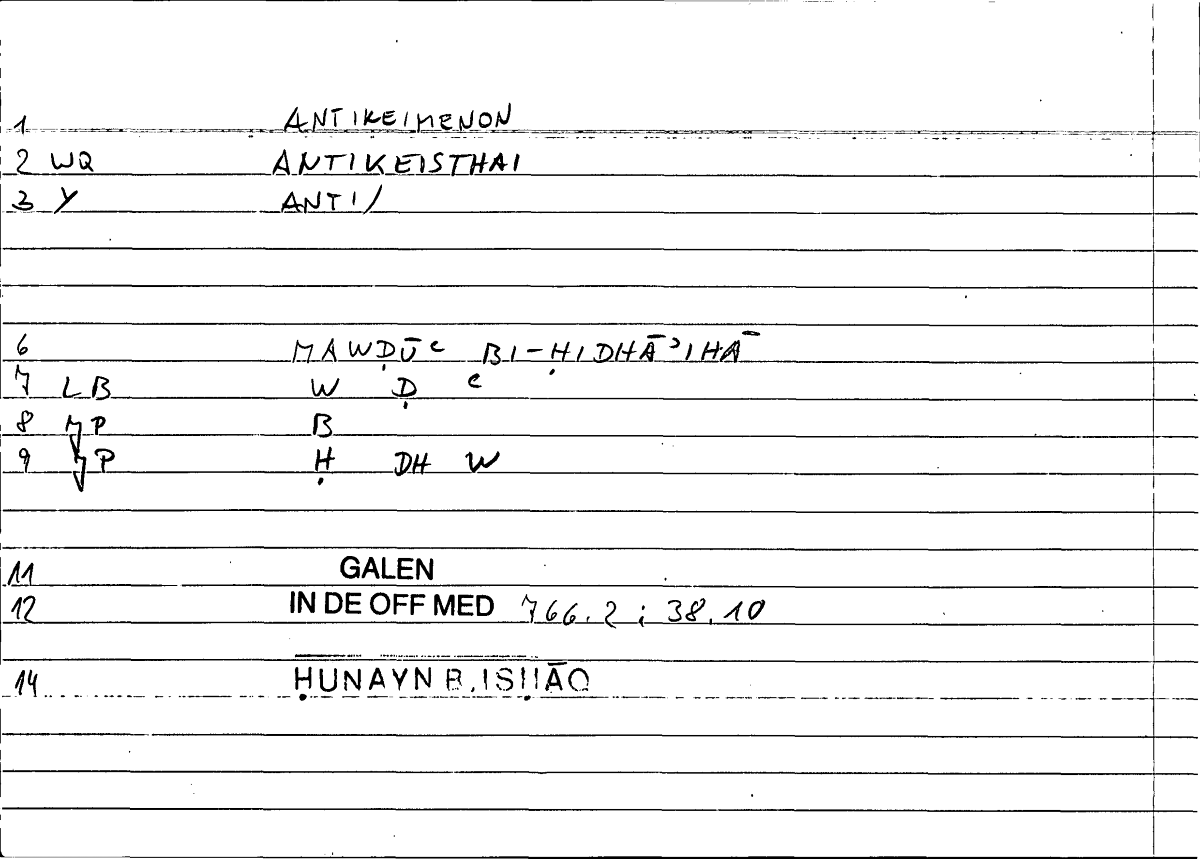 1 ANTIKEIMENON
2 WQ ANTIKEISTHAI
3 Y ANTI/
6 MAWḌŪʿ BI-ḤIDHĀʾIHĀ
7 LB W Ḍ ʿ
8 P B
9 P Ḥ DH W
11 GALEN
12 IN DE OFF MED 766.2 ; 38.10
14 ḤUNAYN B. ISḤĀQ